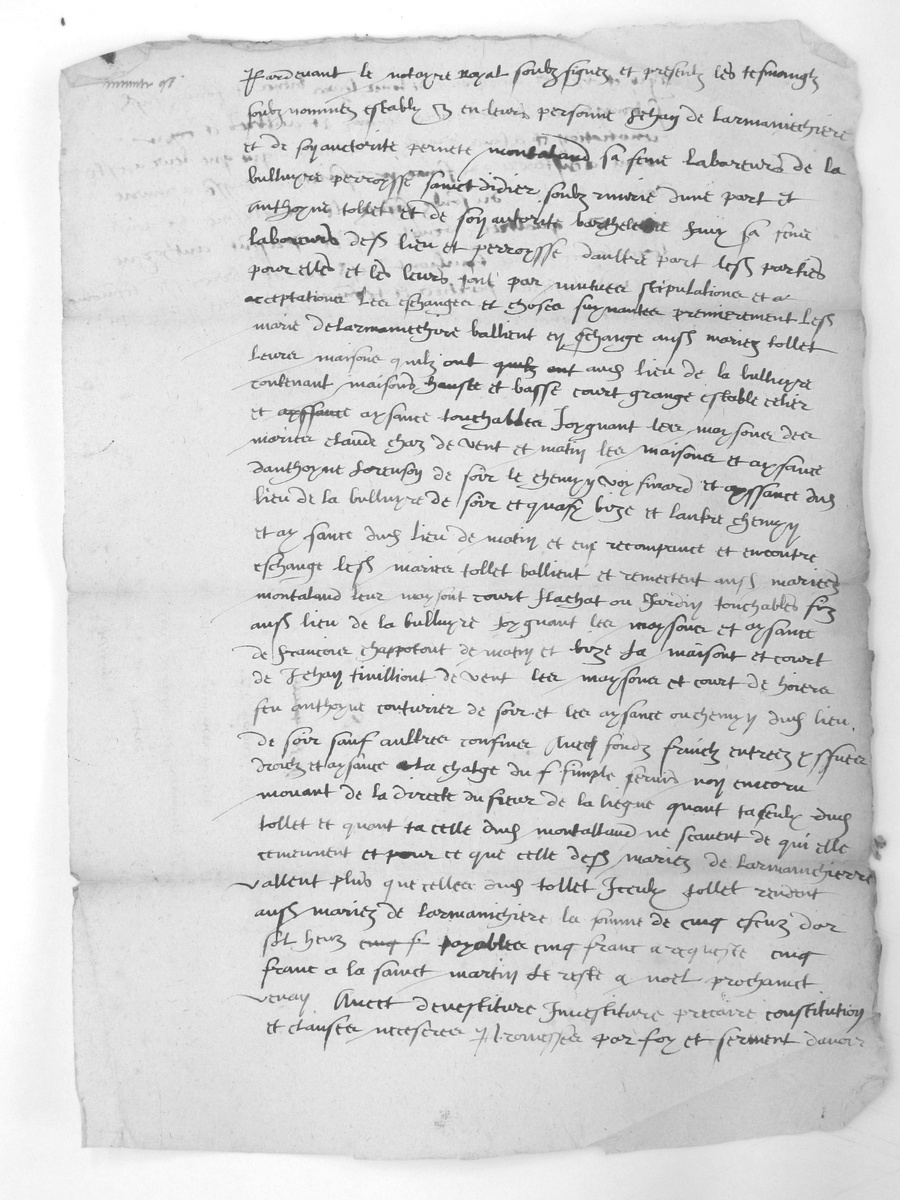 Pardevant le notayre royal soubz signez et presentz les tesmoingtz
soubz nommez establys en leurs personne Jehan de larmanichiere
et de son auctorite pernete montaland sa feme laboreurs de la
bulluyre perroysse sainct didier soubz riverie dune part et
anthoyne tollet et de son autorite barthelemie sa feme
laboreurs desd lieu et perroysse daultre part lesd parties
pour elles et les leurs font par mutues stipulationes et
aceptationes les eschanges et choses suyvantes premierement lesd
marie delarmanichiere ballient en eschange ausd mariez tollet
leurs maisons quilz ont quilz ont aud lieu de la bulluyre
contenant maisons haulte et basse court grange estable celier
et ayssance aysance touchables Joygnant les maysones des
maries claude chaz de vent et matin les maisones et aysance
danthoyne lorenson de soir le chemyn et ayssance dud
lieu de la bulluyre de soir et bize et laultre chemyn
et aysance dud lieu de matin et en recompance et encontre
eschange lesd maries tollet ballient et remectent ausd maries
montaland leur maysont court flachat ou Jardin touchables
ausd lieu de la bulluyre Joygnant les maysones et aysance
de francois chappotont de matin et bize la maisont et court
de Jehan tivilliont de vent les maysones et court de hoirs
feu anthoyne couturier de soir et les aysance ou chemyn dud lieu
de soir sauf aultres confines Avec fondz fruictz entrees yssues
droictz et aysance a la charge du simple servis non encoru
mouant de la directe du sieur de la liegue quant ta ceulx dud
tollet et quant ta celle dud montalland ne scavent de qui elle
et pour ce que celle desd mariez de larmanichierre
vallent plus que celles dud tollet Iceulx tollet rendent
ausd mariez de larmanichiere la somme de cinq escuz dor
sol heux cinq f payables cinq franc a requeste cinq
franc a la sainct martin le reste a noel prochainct
venan Avect devestiture Investiture precaire constitution
et clauses neceseres Promesses par foy et serment davoir